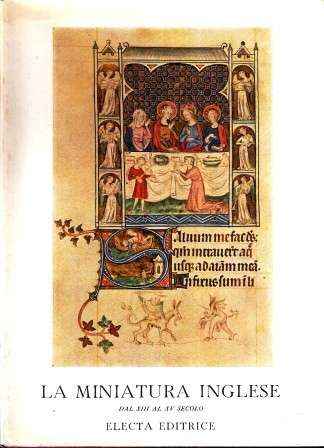 Saluum me fac ds:
qm intrauert aq
usq; ad aĩam meã.
Infixus sum ili
LA MINIATURA INGLESE
DAL XIII AL XV SECOLO
ELECTA EDITRICE